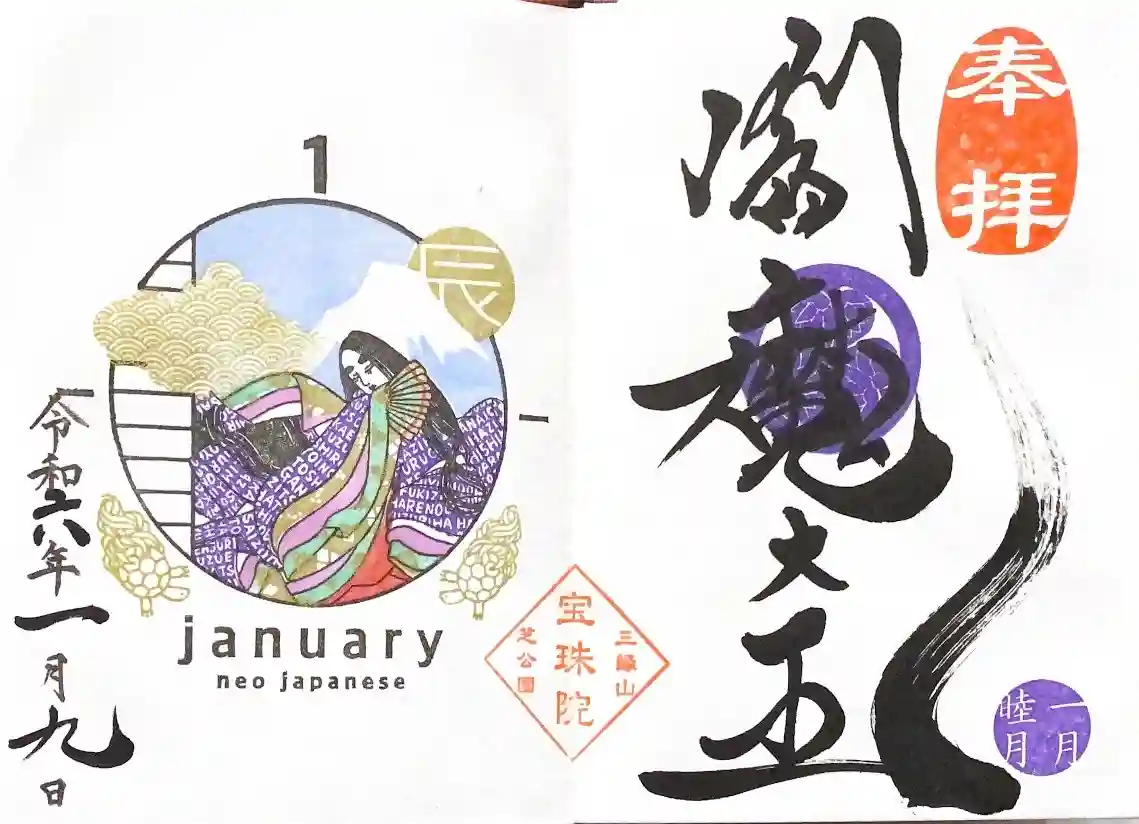 奉拝
閻魔大王
一月
睦月
三縁山
宝珠院
芝公園
1
辰
一
january
neo japanese
令和六年一月九日